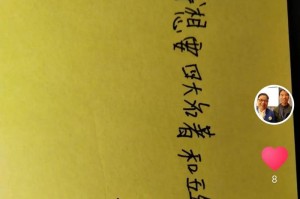 想要四大名著和五
8